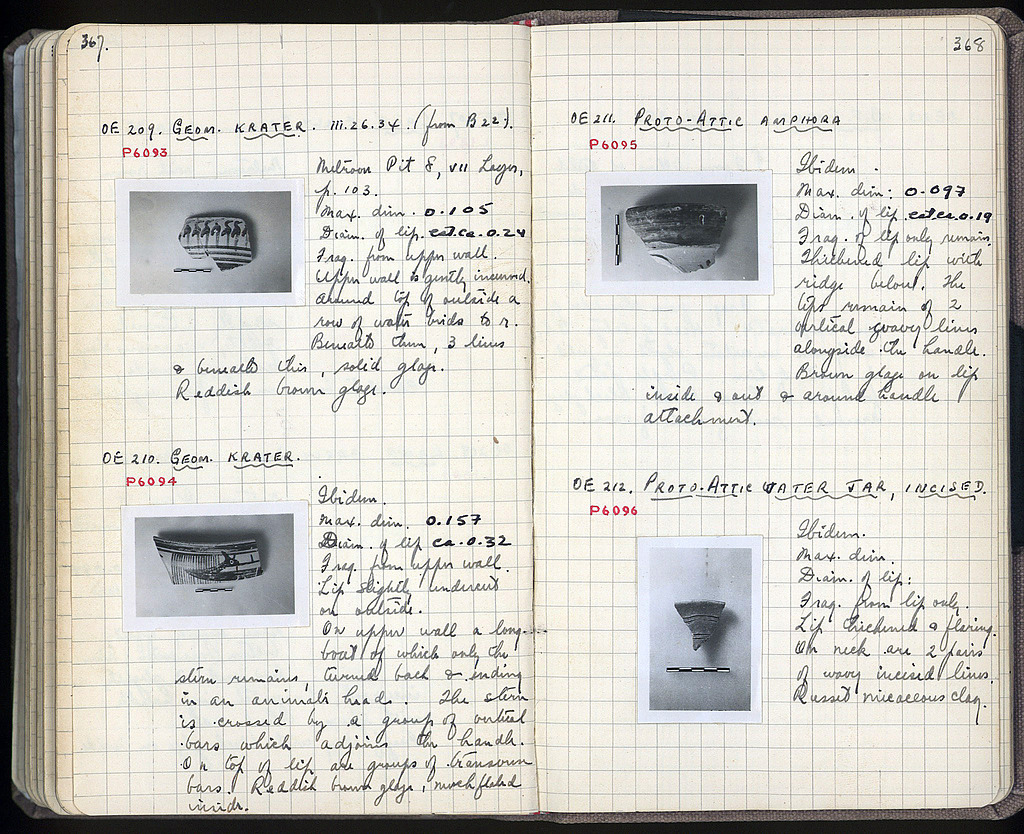 367.
OE 209. GEOM. KRATER. III.26.34. (from B22).
P6093
Metroon Pit 8, VII Layer,
p. 103.
Max. dim. 0.105
Diam. of lip. est. ca. 0.24
Frag. from upper wall.
Upper wall is gently incurved.
Around top of outside a
row of water birds to r.
Beneath them, 3 lines
& beneath this, solid glaze.
Reddish brown glaze.
OE 210. GEOM. KRATER.
P6094
Ibidem.
Max. dim. 0.157
Diam. of lip ca. 0.32
Frag. from upper wall.
Lip slightly undercut
on outside.
On upper wall a long-
boat of which only the
stern remains, turned back & ending
in an animal's head. The stern
is crossed by a group of vertical
bars which adjoins the handle.
On top of lip are groups of transverse
bars. Reddish brown glaze, much flaked
inside.
368
OE 211. PROTO-ATTIC AMPHORA
P6095
Ibidem.
Max. dim: 0.097
Diam. of lip est. ca. 0.19
Frag. of lip only remains.
Thickened lip with
ridge below. The
tips remain of 2
vertical wavy lines
alongside the handle.
Brown glaze on lip
inside & out & around handle
attachment.
OE 212. PROTO-ATTIC WATER JAR, INCISED.
P6096
Ibidem.
Max. dim.
Diam. of lip:
Frag. from lip only.
Lip thickened & flaring.
On neck are 2 pairs
of wavy incised lines.
Russet micaceous clay.